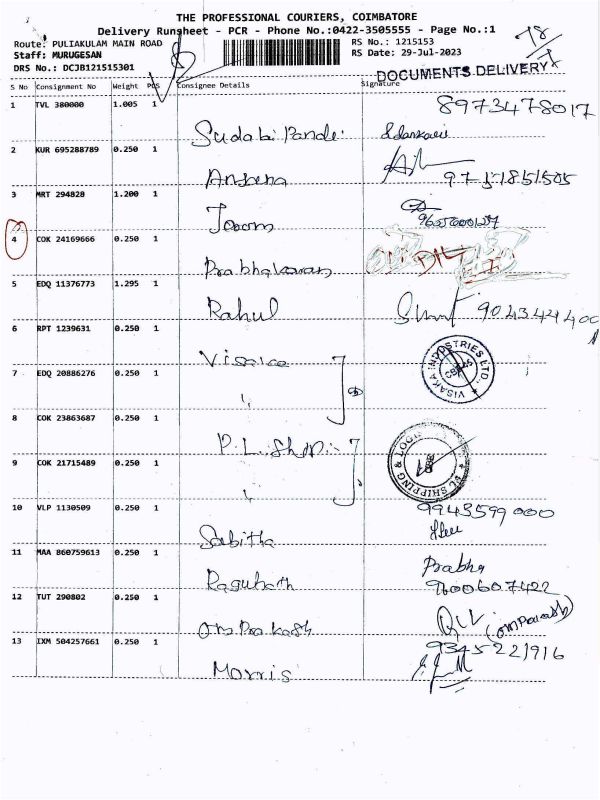 THE PROFESSIONAL COURIERS, COIMBATORE
Delivery Runsheet - PCR - Phone No.:0422-3505555 - Page No.:1
Route: PULIAKULAM MAIN ROAD
RS No.: 1215153
Staff: MURUGESAN
RS Date: 29-Jul-2023
DRS No.: DCJB121515301
DOCUMENTS DELIVERY
S No Consignment No Weight PCS Consignee Details Signature
1 TVL 380000 1.005 1 8973478017
2 KUR 695288789 0.250 1
Ansena 9751851505
3 MRT 294828 1.200 1
4 COK 24169666 0.250 1
Prabhakaran
5 EDQ 11376773 1.295 1
Rahul 9043444400
6 RPT 1239631 0.250 1
Visaka VISAKA INDUSTRIES LTD.
7 EDQ 20886276 0.250 1
8 COK 23863687 0.250 1
P.L. Ship SHIPPING &
9 COK 21715489 0.250 1
10 VLP 1130509 0.250 1 9943599000
Sabitha
11 MAA 860759613 0.250 1 Prabha
Ragunath 9600607422
12 TUT 290802 0.250 1
Om Prakash (omprakash)
13 IXM 504257661 0.250 1 9345221916
Morris